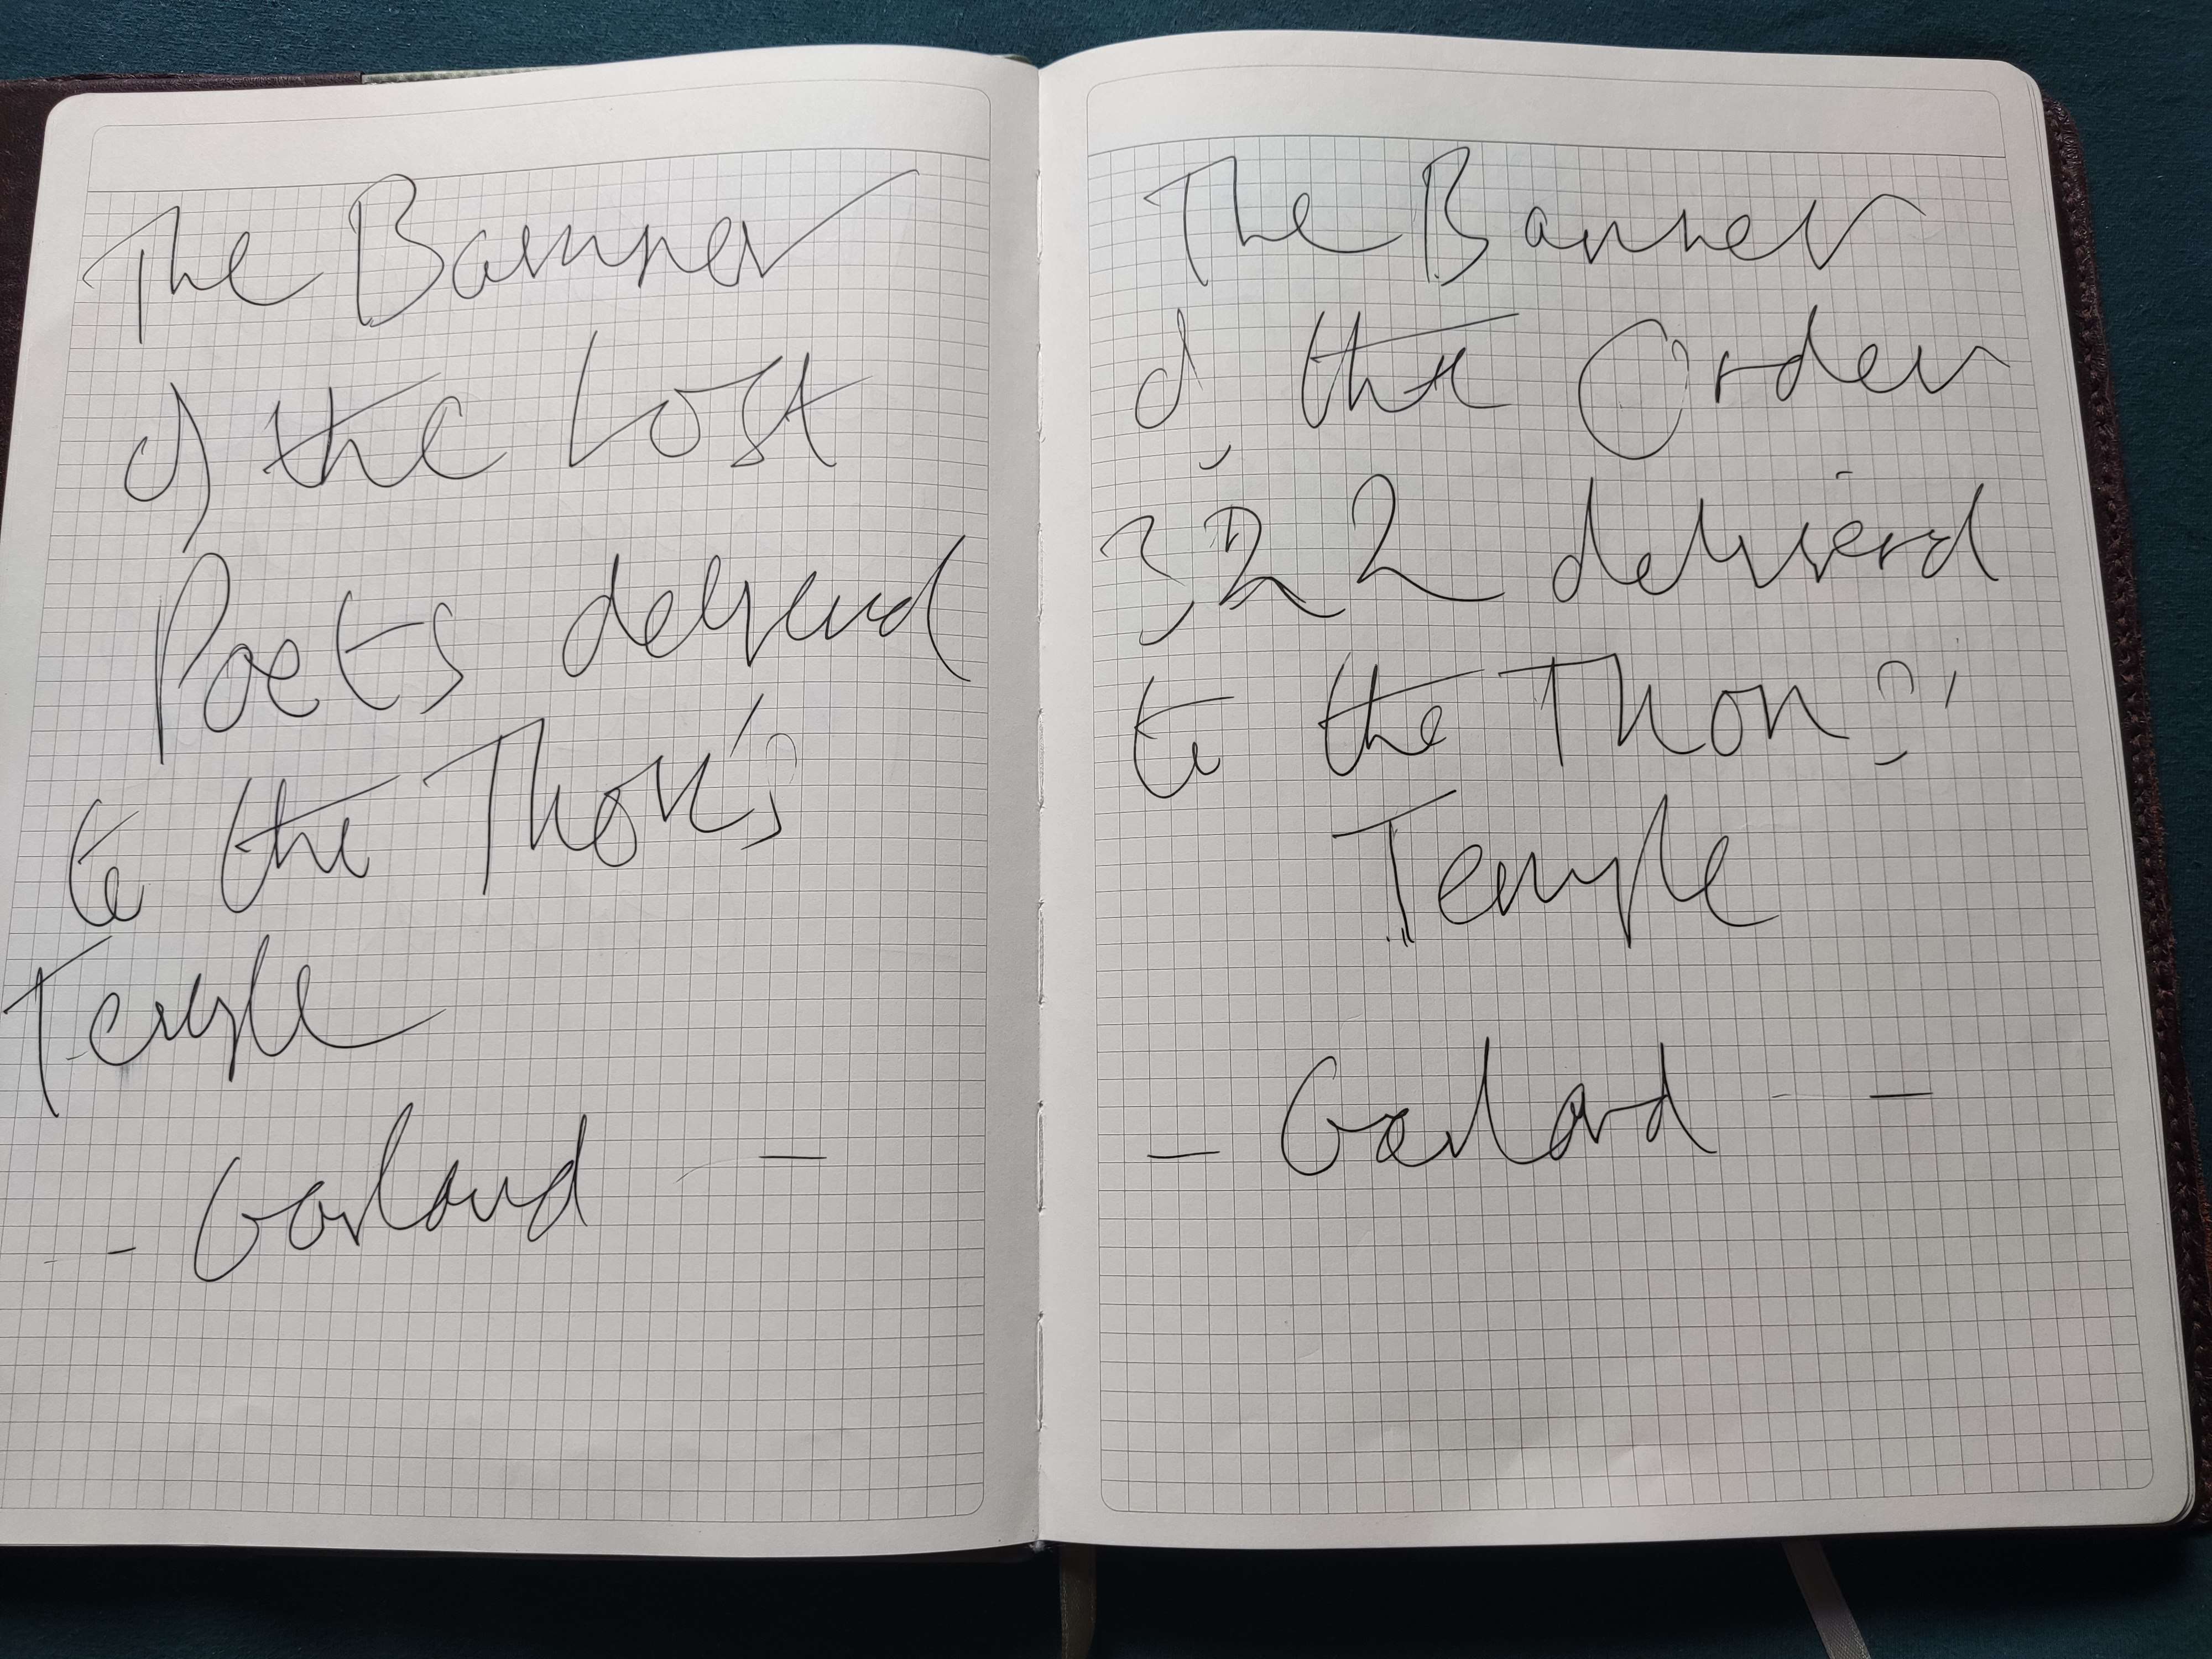 The Banner
of the Lost
Poets
to the Thon's
Temple
- Garland -
The Banner
of the Order
322 deliverd
to the Thon's
Temple
- Garland -